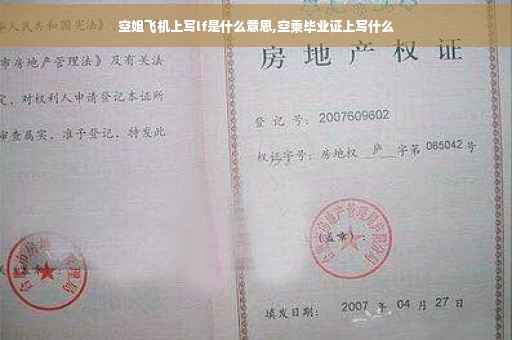 空姐飞机上写lf是什么意思,空乘毕业证上写什么
人民共和国宪法》
市房地产管理法》及有关法
定,对权利人申请登记本证所
审查属实,准予登记,特发此
房地产权证
登记号:2007609602
权证字号:房地权 庐 字第 085042 号
(盖章):
填发日期: 2007 年 04 月 27 日